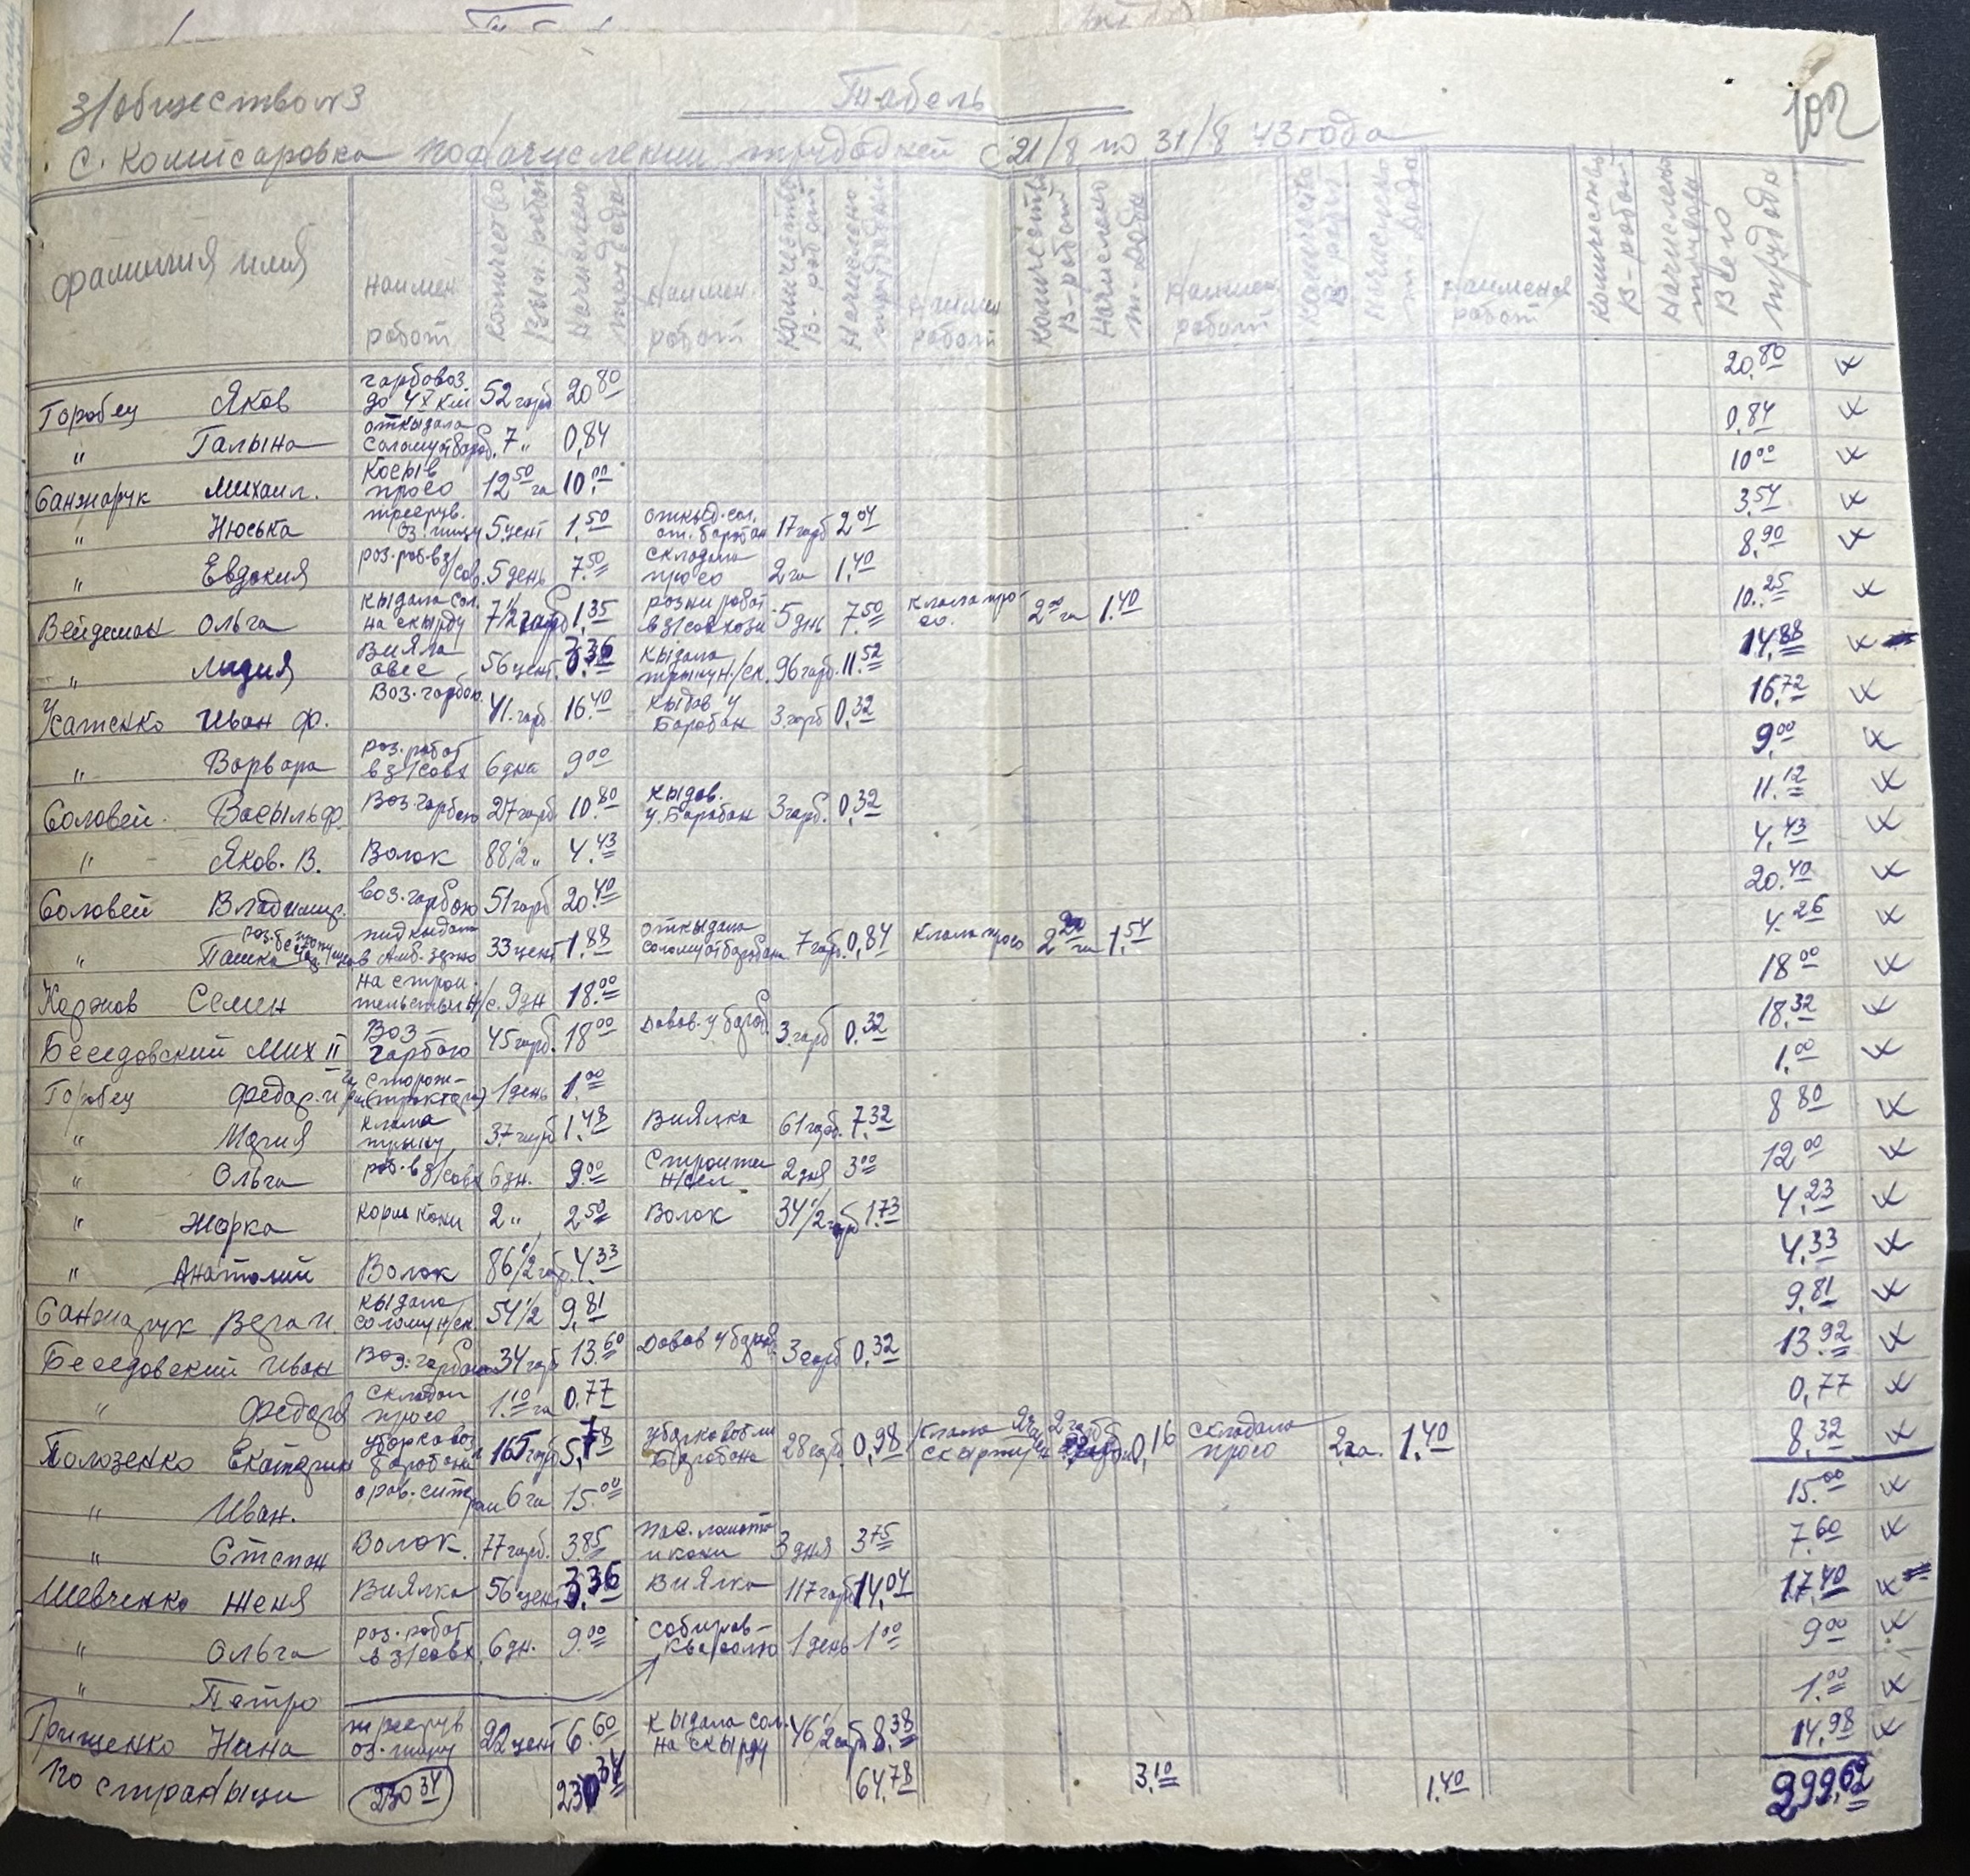 З/общество №3
Табель
102
с. Комисаровка по начислении трудодней с 21/8 по 31/8 43 года
Фамилия имя
Наимен. работ
Количество вып. работ
Начислено трудодн
Наимен. работ
Количество в-работ
Начислено трудодней
Наимен работ
Количеств в-работ
Начислено т-додн
Наимен работ
Количество в-работ
Начислено т-додн
Наименов работ
Количество в-работ
Начислено трудодн
Всего трудодн
Горобец Яков гарбовоз. до 4х км 52 гарб 20,80 20,80
" Галына откыдала солому от бараб. 7 " 0,84 0,84
Санжарук Михаил. Косыв просо 12,50 га 10,00 10,00
" Нюська оз. пшен 5 цент 1,50 откыд. сол. от. барабан 17 гарб 2,04 3,54
" Евдокия роз. раб. в з/сов. 5 день 7,50 складала просо 2 га 1,40 8,90
Вейдеман Ольга кыдала сол. на скырду 7 1/2 гарб 1,35 розни работ в з/совхози 5 днь 7,50 Клала просо. 2,00 га 1,40 10,25
" Лидия Вияла овес 56 цент. 3,36 Кыдала н/ск. 96 гарб. 11,52 14,88
Усатенко Иван Ф. Воз. гарбою. 41 гарб 16,40 Кыдав у барабан 3 гарб 0,32 16,72
" Варвара роз. работ в з/совх 6 дня 9,00 9,00
Соловей Васыль Ф. Воз гарбою 27 гарб 10,80 Кыдав. у. барабан 3 гарб. 0,32 11,12
" Яков. В. Волок 88 1/2 " 4,43 4,43
Соловей Владимир. воз. гарбою 51 гарб 20,40 20,40
" Пашка 33 цент 1,88 откыдала солому от барабана 7 гарб. 0,84 Клала просо 2,20 га 1,54 4,26
Коржов Семен на строительстви н/с. 9 дн 18,00 18,00
Беседовский Мих II Воз гарбою 45 гарб. 18,00 Давав у бараб. 3 гарб 0,32 18,32
Горобец Федор. И сторож 1 день 1,00 1,00
" Мария Клала 37 гарб 1,48 Виялка 61 гарб. 7,32 8,80
" Ольга роб. в з/совх 6 дн. 9,00 Строител н/сел 2 дня 3,00 12,00
" Жорка корм кони 2 " 2,50 Волок 34 1/2 гарб 1,73 4,23
" Анатолий Волок 86 1/2 гар. 4,33 4,33
Санжарук Вера И. кыдала солому н/ск 54 1/2 9,81 9,81
Беседовский Иван Воз. гарбою 34 гарб 13,60 Давав у бараб 3 гарб 0,32 13,92
" Федора складал просо 1,10 га 0,77 0,77
Полозенко Екатерин уборка воз. барабана 165 гарб 5,78 уборка возли барабана 28 гарб. 0,98 Клала скырту 2 гарб 0,16 складала просо 2 га. 1,40 8,32
" Иван. 6 га 15,00 15,00
" Степан Волок. 77 гарб. 3,85 пас. лошати и кони 3 дня 3,75 7,60
Шевченко Женя Виялка 56 цент 3,36 Виялка 117 гарб 14,04 17,40
" Ольга раз. робот в з/совх. 6 дн. 9,00 собирав квасолю 1 день 1,00 9,00
" Петро 1,00
Грищенко Нина оз. пшен 22 цент 6,60 кыдала сол. на скырду 46 1/2 гарб 8,38 14,98
По страныци 230,34 230,34 64,78 3,10 1,40 299,62